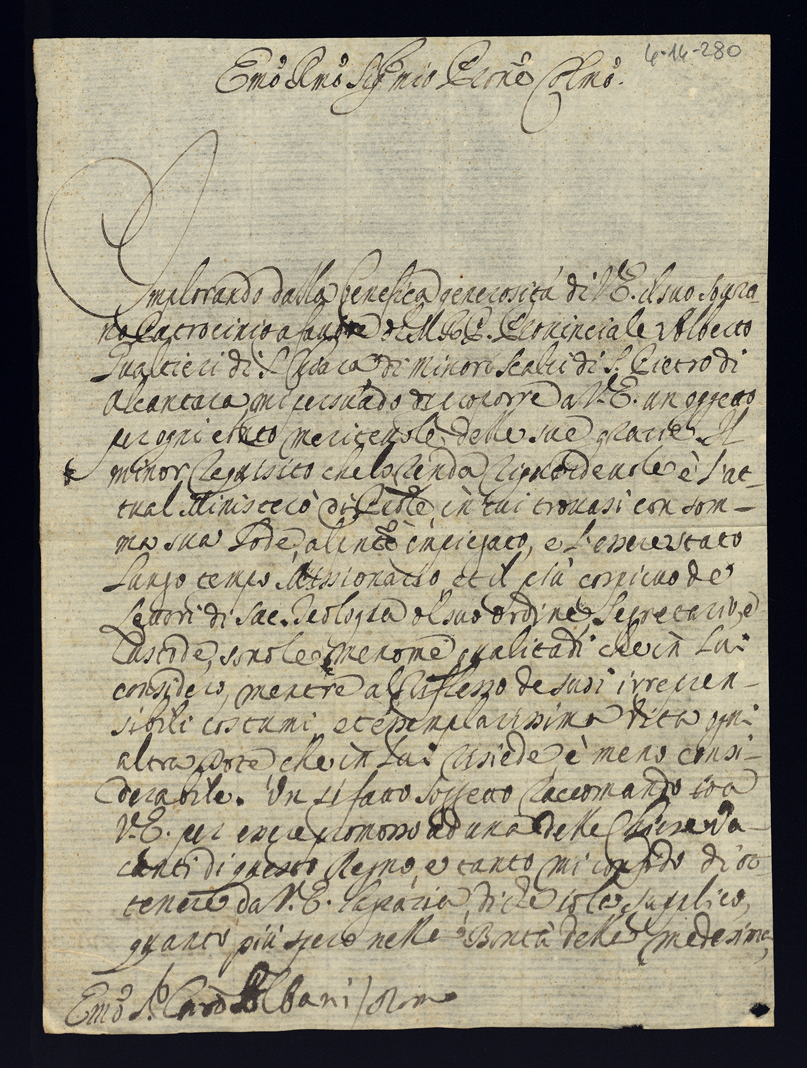 4-14-280
Emo Rmo Sig.r mio Prone Colmo.
Implorando dalla benefica generosità di V.E. il suo sovra-
no Patrocinio a favore di M. P. Provinciale Alberto
Gualtieri di S. Chiara di Minori Scalzi di S. Pietro di
Alcantara mi persuado di proporre a V.E. un oggetto
per ogni conto meritevole delle sue grazie. Il
minor requisito che lo renda riguardevole è l'at-
tual Ministero di Prole in cui trovasi con som-
ma sua lode, al in te impiegato, e l'essere stato
lungo tempo Missionario et il più cospicuo de
Lettori di Sac. Teologia del suo ordine, Segretario, e
Custode, sono le menome qualità di che in Lui
considero, mentre al riflesso de suoi irrepren-
sibili costumi, et essemplarissima Vita ogni
altra dote che in Lui risiede è meno consi-
derabile. Un sì fatto soggetto raccomando io a
V.E. per essere promosso ad una delle Chiese Va-
canti di questo Regno, e tanto mi confido di ot-
tenere da V.E. la grazia di che la supplico,
quanto più spero nella Bontà della medesima,
Emo S.r Card Albani / Roma